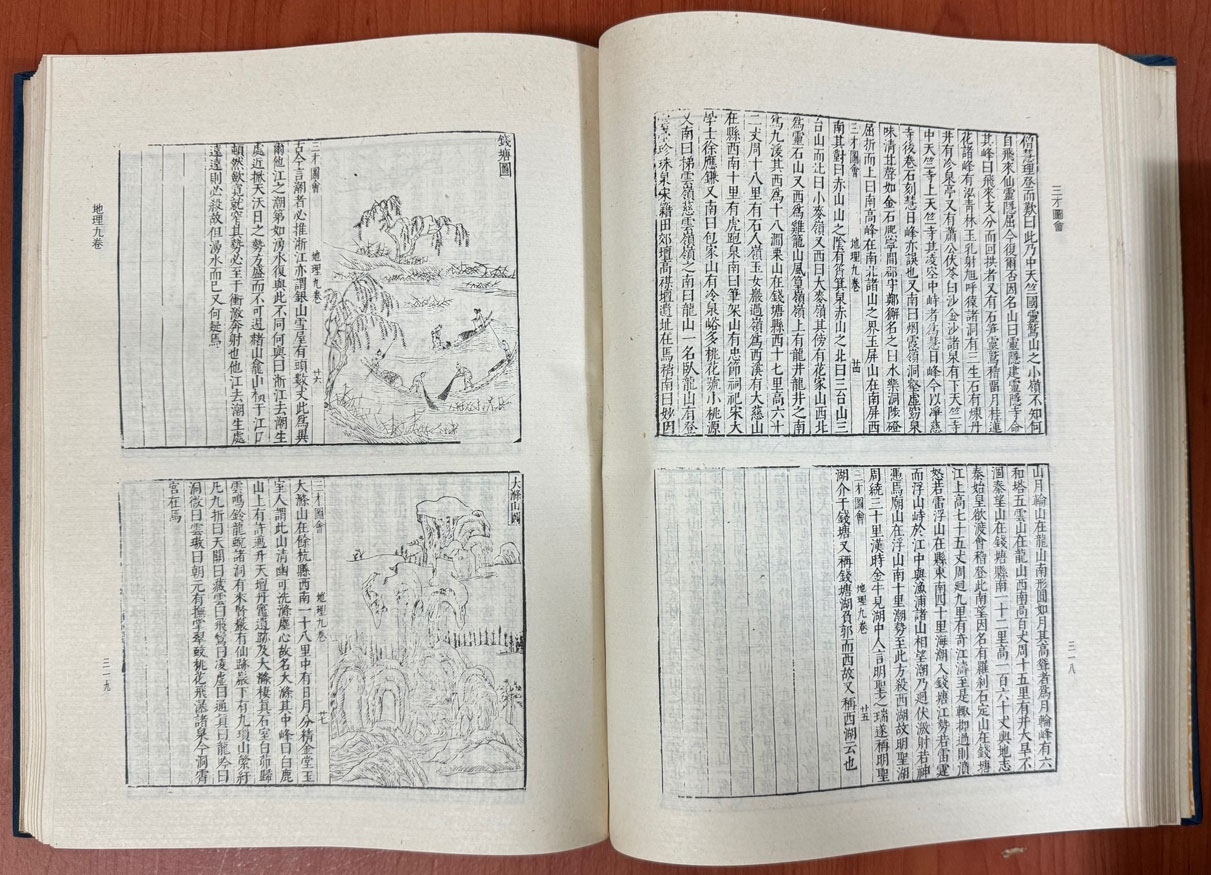 三才圖會
僧慧理登而歎曰此乃中天竺國靈鷲山之小嶺不知何
自飛來仙靈隱屈今復爾否因名山曰靈隱建靈隱寺命
其峰曰飛來支分而回拱者又有石笋靈鷲稽畱月桂蓮
花諸峰有泓青林玉乳射旭呼猿諸洞有三生石有練丹
井有冷泉亭又有蕭公伏苓曰沙金沙諸泉有下天竺寺
中天竺寺上天竺寺其凌空中峙者為慧日峰今以淨慈
寺後巷石刻慧日峰亦誤也又南曰烟雲嶺洞壑虛豁泉
味清甘聲如金石熙寧間郡守鄭獬名之曰水樂洞陟磴
屈折而上曰南高峰在南北諸山之界玉屏山在南屏西
三才圖會 地理九卷 廿四
南其對曰赤山山之陰有筲箕泉赤山之北曰三台山三
台山而北曰小麥嶺又西曰大麥嶺其傍有花家山西北
為靈石山又西為雞籠山風篁嶺嶺上有龍井龍井之南
為九溪其西為十八澗栗山在錢塘縣西十七里高六十
二丈周十八里有石人嶺玉女巖過嶺為西溪有大慈山
在縣西南十里有虎跑泉南曰筆架山有忠節祠祀宋大
學士徐應鑣又南曰包家山有冷泉峪多桃花號小桃源
又南曰梯雲嶺慈雲嶺嶺之南曰龍山一名臥龍山有登
珍珠泉宋籍田郊壇高禖壇遺址在焉稍南曰妙因
山月輪山在龍山南形圓如月其高聳者為月輪峰有六
和塔五雲山在龍山西南高百丈周十五里有井大旱不
涸秦望山在錢塘縣南一十二里高一百六十丈輿地志
秦始皇欲渡會稽登此南望因名有羅剎石定山在錢塘
江上高七十五丈周廻九里有奇江濤至是輙抑過則潰
怒若雷浮山在縣東南四十里海潮入錢塘江勢若雷霆
而浮山峙於江中與漁浦諸山相望潮乃迴伏激射若神
慿焉廟山在浮山南十里潮勢至此方殺西湖故明聖湖
周繞三十里漢時金牛見湖中人言明聖之瑞遂稱明聖
三才圖會 地理九卷 廿五
湖介于錢塘又稱錢塘湖負郭而西故又稱西湖云也
三一八
錢塘圖
三才圖會 地理九卷 廿六
古今言潮者必推浙江亦謂銀山雪屋有頭數丈此為異
爾他江之潮第如湧水復與此不同何與曰浙江去潮生
處近掀天沃日之勢方盛而不可遏赭山龕山橫于江口
頓然歛竟就窄其勢必至于衝激奔射也他江去潮生處
遠遠則必殺故但湧水而已又何疑焉
地理九卷
大滌山圖
三才圖會 地理九卷 廿七
大滌山在餘杭縣西南一十八里中有日月分精金堂玉
室人謂此山清幽可洗滌塵心故名大滌其中峰曰白鹿
山上有許邁升天壇丹竈遺跡及大滌棲真石室白茆歸
雲鳴鈴龍蛻諸洞有來賢巖有仙跡巖下有九瑣山縈紆
凡九折曰天關曰藏雲曰飛鸞曰凌虛曰通真曰龍吟曰
洞微曰雲璈曰朝元有撫掌翠蛟桃花飛瀑諸泉今洞霄
宮在焉
三一九